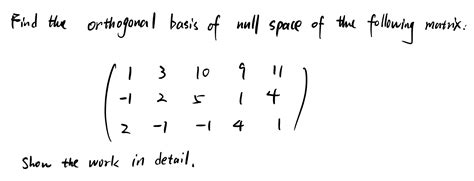 Find the orthogonal basis of null space of the following matrix:
1 3 10 9 11
-1 2 5 1 4
2 -1 -1 4 1
Show the work in detail.